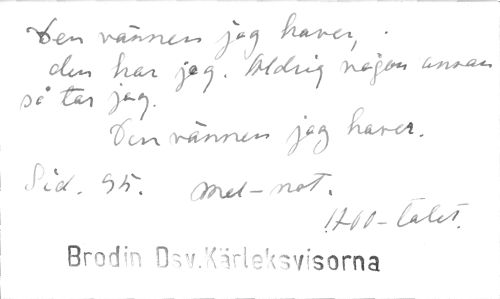 Den vännen jag haver,
den har jag. Aldrig någon annan
så tar jag.
Den vännen jag haver.
Sid. 95. Mel-not.
1700-talet.
Brodin Dsv.Kärleksvisorna